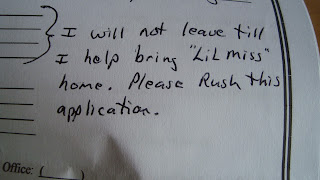 I will not leave till
I help bring "LiL miss"
home. Please Rush this
application.
Office: (